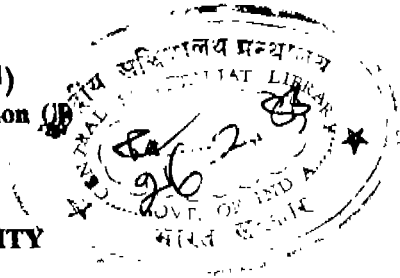 )
ion (P
केन्द्रीय सचिवालय ग्रन्थालय
CENTRAL SECRETARIAT LIBRARY
26.2.
GOVT. OF INDIA
भारत सरकार
ITY